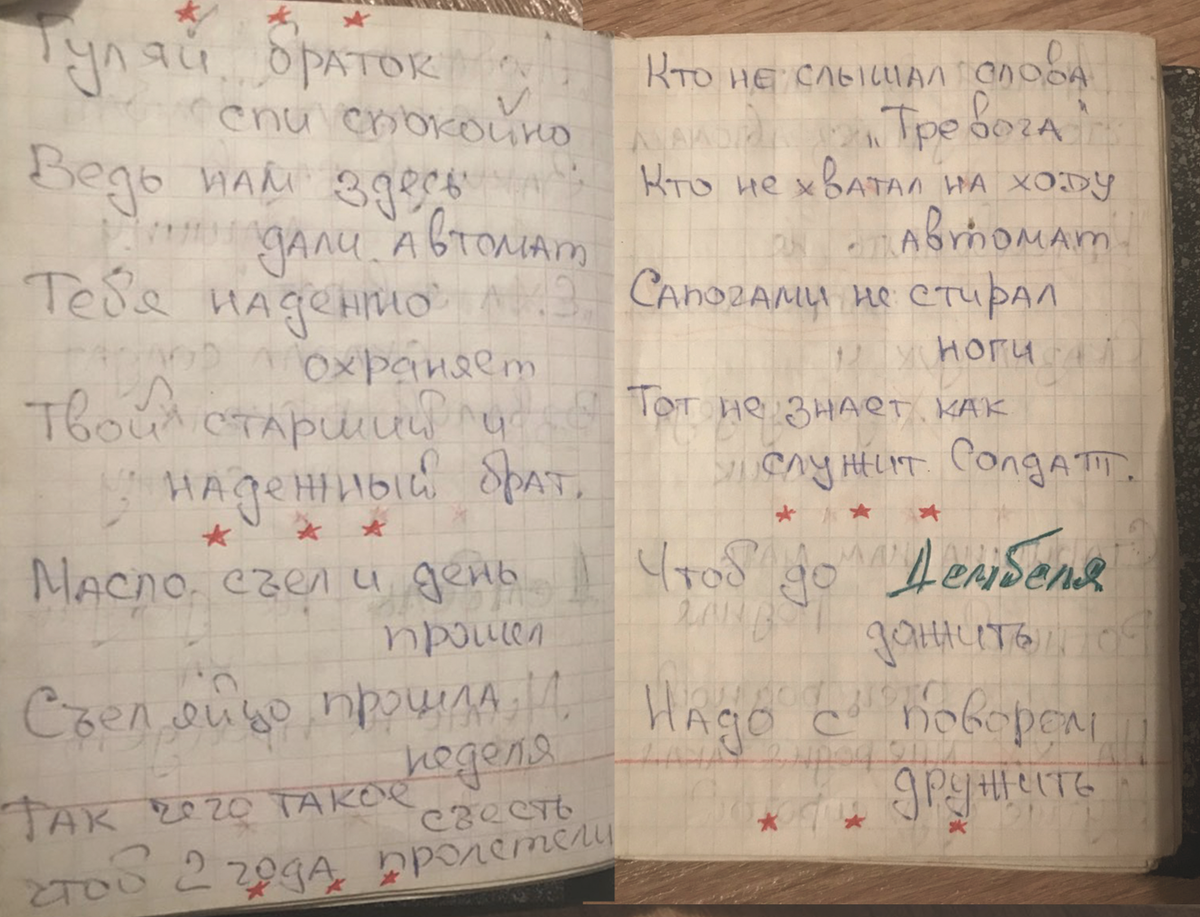 Гуляй браток
спи спокойно
Ведь нам здесь
дали автомат
Тебя надежно
охраняет
Твой старший и
надежный брат.
Масло съел и день
прошел
Съел яйцо прошла
неделя
Так чего такое
съесть
чтоб 2 года пролетели
Кто не слышал слова
„Тревога"
Кто не хватал на ходу
автомат
Сапогами не стирал
ноги
Тот не знает как
служит Солдат.
Чтоб до Дембеля
дожить
Надо с поваром
дружить